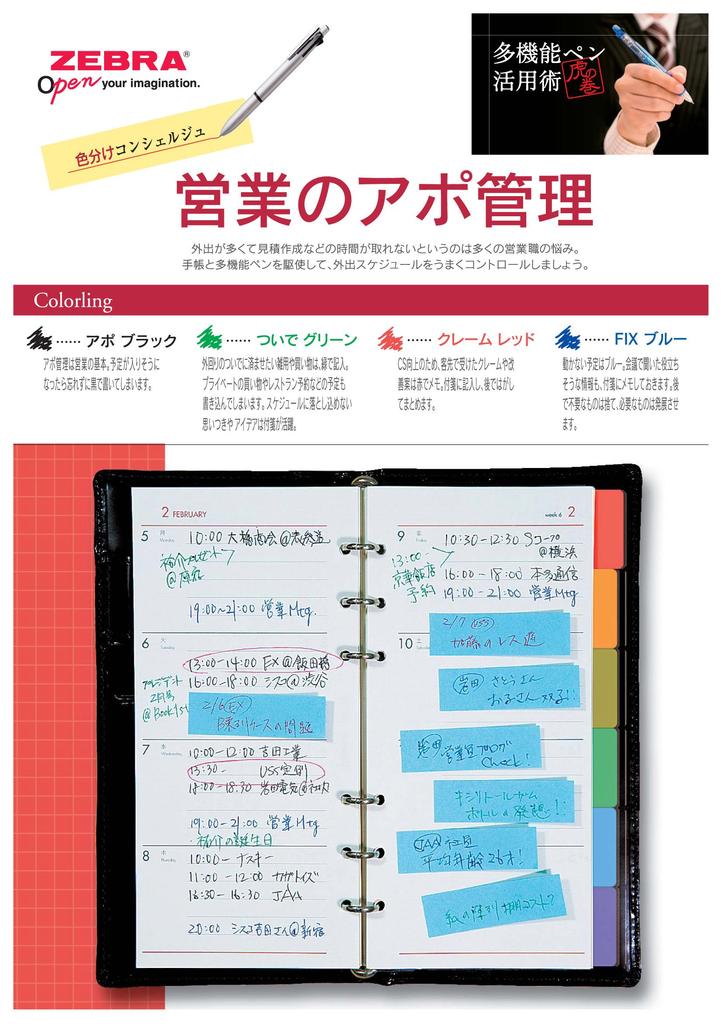 ZEBRA®
Open your imagination.
色分けコンシェルジュ
多機能ペン
活用術
虎の巻
営業のアポ管理
外出が多くて見積作成などの時間が取れないというのは多くの営業職の悩み。
手帳と多機能ペンを駆使して、外出スケジュールをうまくコントロールしましょう。
Colorling
…… アポ ブラック
アポ管理は営業の基本。予定が入りそうに
なったら忘れずに黒で書いてしまいます。
…… ついで グリーン
外回りのついでに済ませたい雑用や買い物は、緑で記入。
プライベートの買い物やレストラン予約などの予定も
書き込んでしまいます。スケジュールに落とし込めない
思いつきや アイデアは付箋が活躍。
…… クレーム レッド
CS向上のため、客先で受けたクレームや改
善案は赤でメモ。付箋に記入し、後ではがし
てまとめます。
…… FIX ブルー
動かない予定はブルー。会議で聞いた役立ち
そうな情報も、付箋にメモしておきます。後
で不要なものは捨て、必要なものは発展させ
ます。
2 FEBRUARY
5 月 Monday
10:00 大橋商会@表参道
裕介プレゼント
@原宿
19:00~21:00 営業Mtg.
6 火 Tuesday
13:00-14:00 EX@飯田橋
16:00-18:00 シスコ@渋谷
プレジデント
2月号
@Book1st
2/6 EX
陳列ケースの問題
7 水 Wednesday
10:00-12:00 吉田工業
13:30- USS定例
18:30 岩田電気@
19:00-21:00 営業Mtg
・裕介の誕生日
8 木 Thursday
10:00- ナスキー
11:00-12:00 カザトイズ
16:30 JAA
20:00 シスコ吉田さん@新宿
week 6 2
9 金 Friday
10:30-12:30 Sコープ
@横浜
13:00-
京華飯店
予約
16:00-18:00 本多通信
19:00-21:00 営業Mtg
10 土
2/7 USS
加藤のレス遅
岩田 さとうさん
お子さん双子!!
営業部ブログ
Check!
キシリトールガム
ボトルの発想!!
JAA 社員
平均年齢26才!
紙の陳列棚コスト?